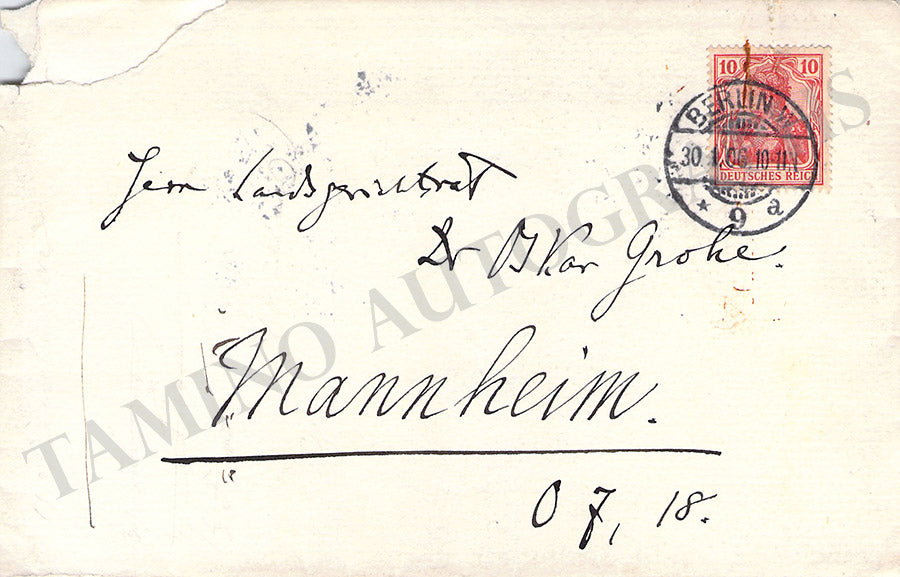 10 10
DEUTSCHES REICH
BERLIN W
30 1 06 10-11V
* 9 a
Herrn Landsgerichtsrat
Dr Oskar Grohe.
Mannheim.
O 7, 18.
TAMINO AUTOGRAPHS